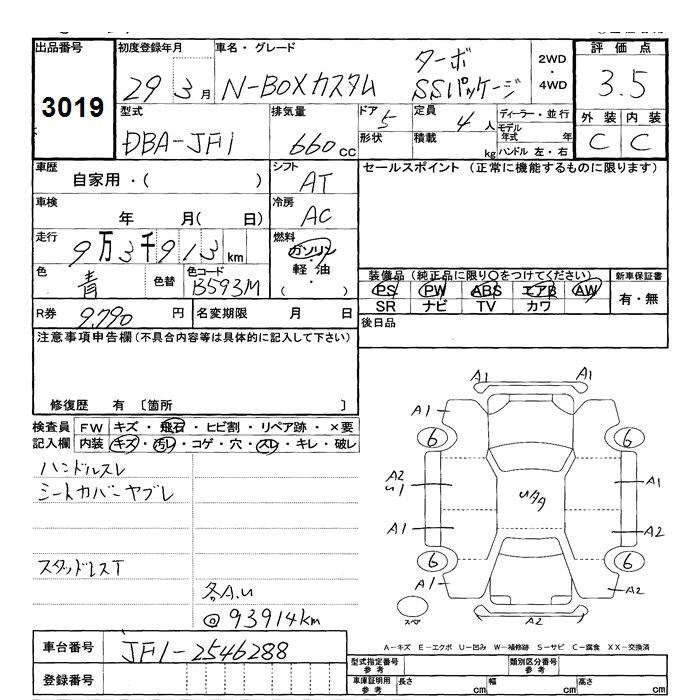 出品番号 3019
初度登録年月 29 3月
車名・グレード N-BOXカスタム ターボ SSパッケージ
2WD・4WD
評価点 3.5
外装 内装
C C
型式 DBA-JF1
排気量 660cc
ドア 5
形状
定員 4人
積載 kg
ディーラー・並行
モデル年式 年
ハンドル 左・右
車歴 自家用・( )
シフト AT
セールスポイント (正常に機能するものに限ります)
車検 年 月( 日)
冷房 AC
走行 9万3千913km
燃料 ガソリン・軽油・( )
色 青
色替
色コード B593M
装備品 (純正品に限り○をつけてください)
PS PW ABS エアB AW
SR ナビ TV カワ
新車保証書 有・無
R券 9,790円
名変期限 月 日
後日品
注意事項申告欄 (不具合内容等は具体的に記入して下さい)
修復歴 有 〔箇所 〕
検査員記入欄
FW キズ・飛石・ヒビ割・リペア跡・×要
内装 キズ・汚レ・コゲ・穴・スレ・キレ・破レ
ハンドルスレ
シートカバーヤブレ
スタッドレスT
各A.U
◎93914km
A1 A1
A1
6 6
A2
U1
A1
A1
A2
6 6
A1
A2
A2
スペア
A-キズ E-エクボ U-凹み W-補修跡 S-サビ C-腐食 XX-交換済
車台番号 JF1-2546288
登録番号
型式指定番号 参考
類別区分番号 参考
車庫証明用 参考
長さ cm 幅 cm 高さ cm